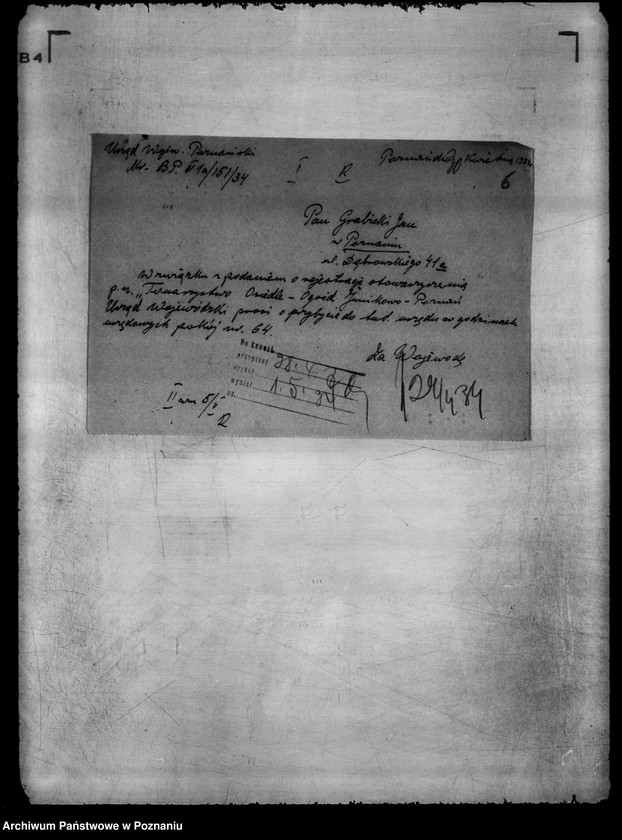 B4
Urząd Wojew. Poznański
Nr. B.P. V 1a/151/34
I R
Poznań, dn. Kwietnia 193
6
Pan Grabicki Jan
w Poznaniu
ul. Dąbrowskiego 41a
W związku z podaniem o rejestrację stowarzyszenia
p. n. „Towarzystwo Osiedle - Ogród Junikowo - Poznań
Urząd Wojewódzki prosi o przybycie do tut. urzędu w godzinach
urzędowych pokój nr. 64.
Za Wojewodę
24/4 34
Do kancel.
przepisał 28.4
czytał
wysłał 1.5.34
II am 5/V
R
Archiwum Państwowe w Poznaniu